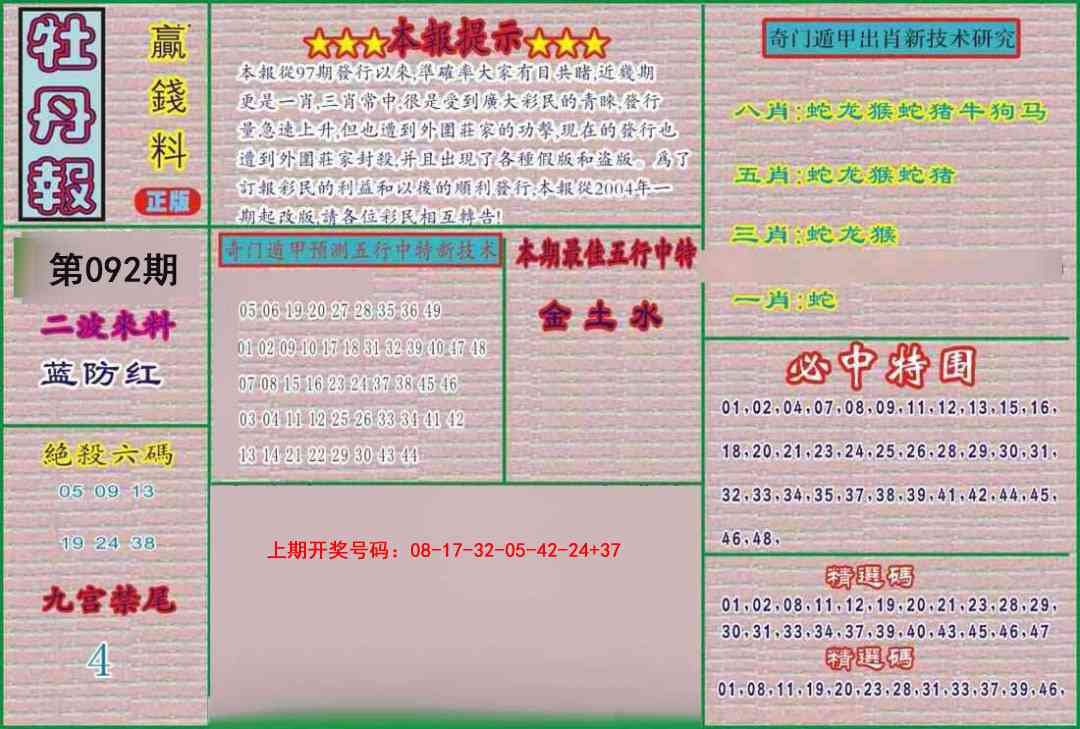 牡丹報
贏錢料
正版
★★★本報提示★★★
本報從97期發行以來,準確率大家有目共睹,近幾期
更是一肖,三肖常中,很是受到廣大彩民的青睞,發行
量急速上升,但也遭到外圍莊家的功擊,現在的發行也
遭到外圍莊家封殺,并且出現了各種假版和盗版。爲了
訂報彩民的利益和以後的順利發行,本報從2004年一
期起改版,請各位彩民相互轉告!
奇门遁甲出肖新技术研究
八肖:蛇龙猴蛇猪牛狗马
五肖:蛇龙猴蛇猪
三肖:蛇龙猴
一肖:蛇
第092期
二波來料
蓝防红
奇门遁甲预测五行中特新技术
05 06 19 20 27 28 35 36 49
01 02 09 10 17 18 31 32 39 40 47 48
07 08 15 16 23 24 37 38 45 46
03 04 11 12 25 26 33 34 41 42
13 14 21 22 29 30 43 44
本期最佳五行中特
金土水
必中特围
01,02,04,07,08,09,11,12,13,15,16,
18,20,21,21,23,24,25,26,28,29,30,31,
32,33,34,35,37,38,39,41,42,44,45,
46,48,
絕殺六碼
05 09 13
19 24 38
九宫禁尾
4
上期开奖号码：08-17-32-05-42-24+37
精選碼
01,02,08,11,12,19,20,21,23,28,29,
30,31,33,34,37,39,40,43,45,46,47
精選碼
01,08,11,19,20,23,28,31,33,37,39,46,